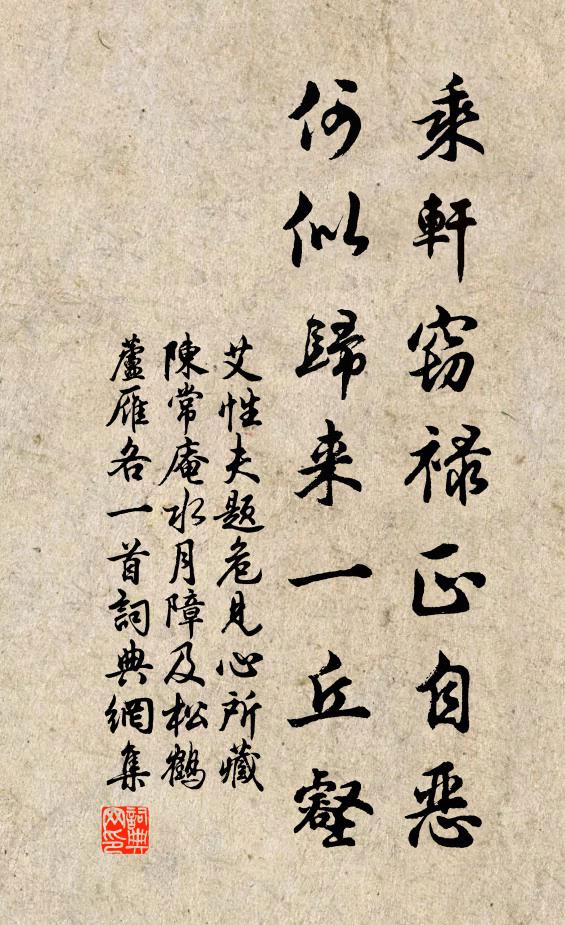 乘軒窃禄正自恶
何似歸来一丘壑
艾性夫题危见心所藏
陳常庵水月障及松鶴
蘆雁各一首詞典網集
詞典
网印